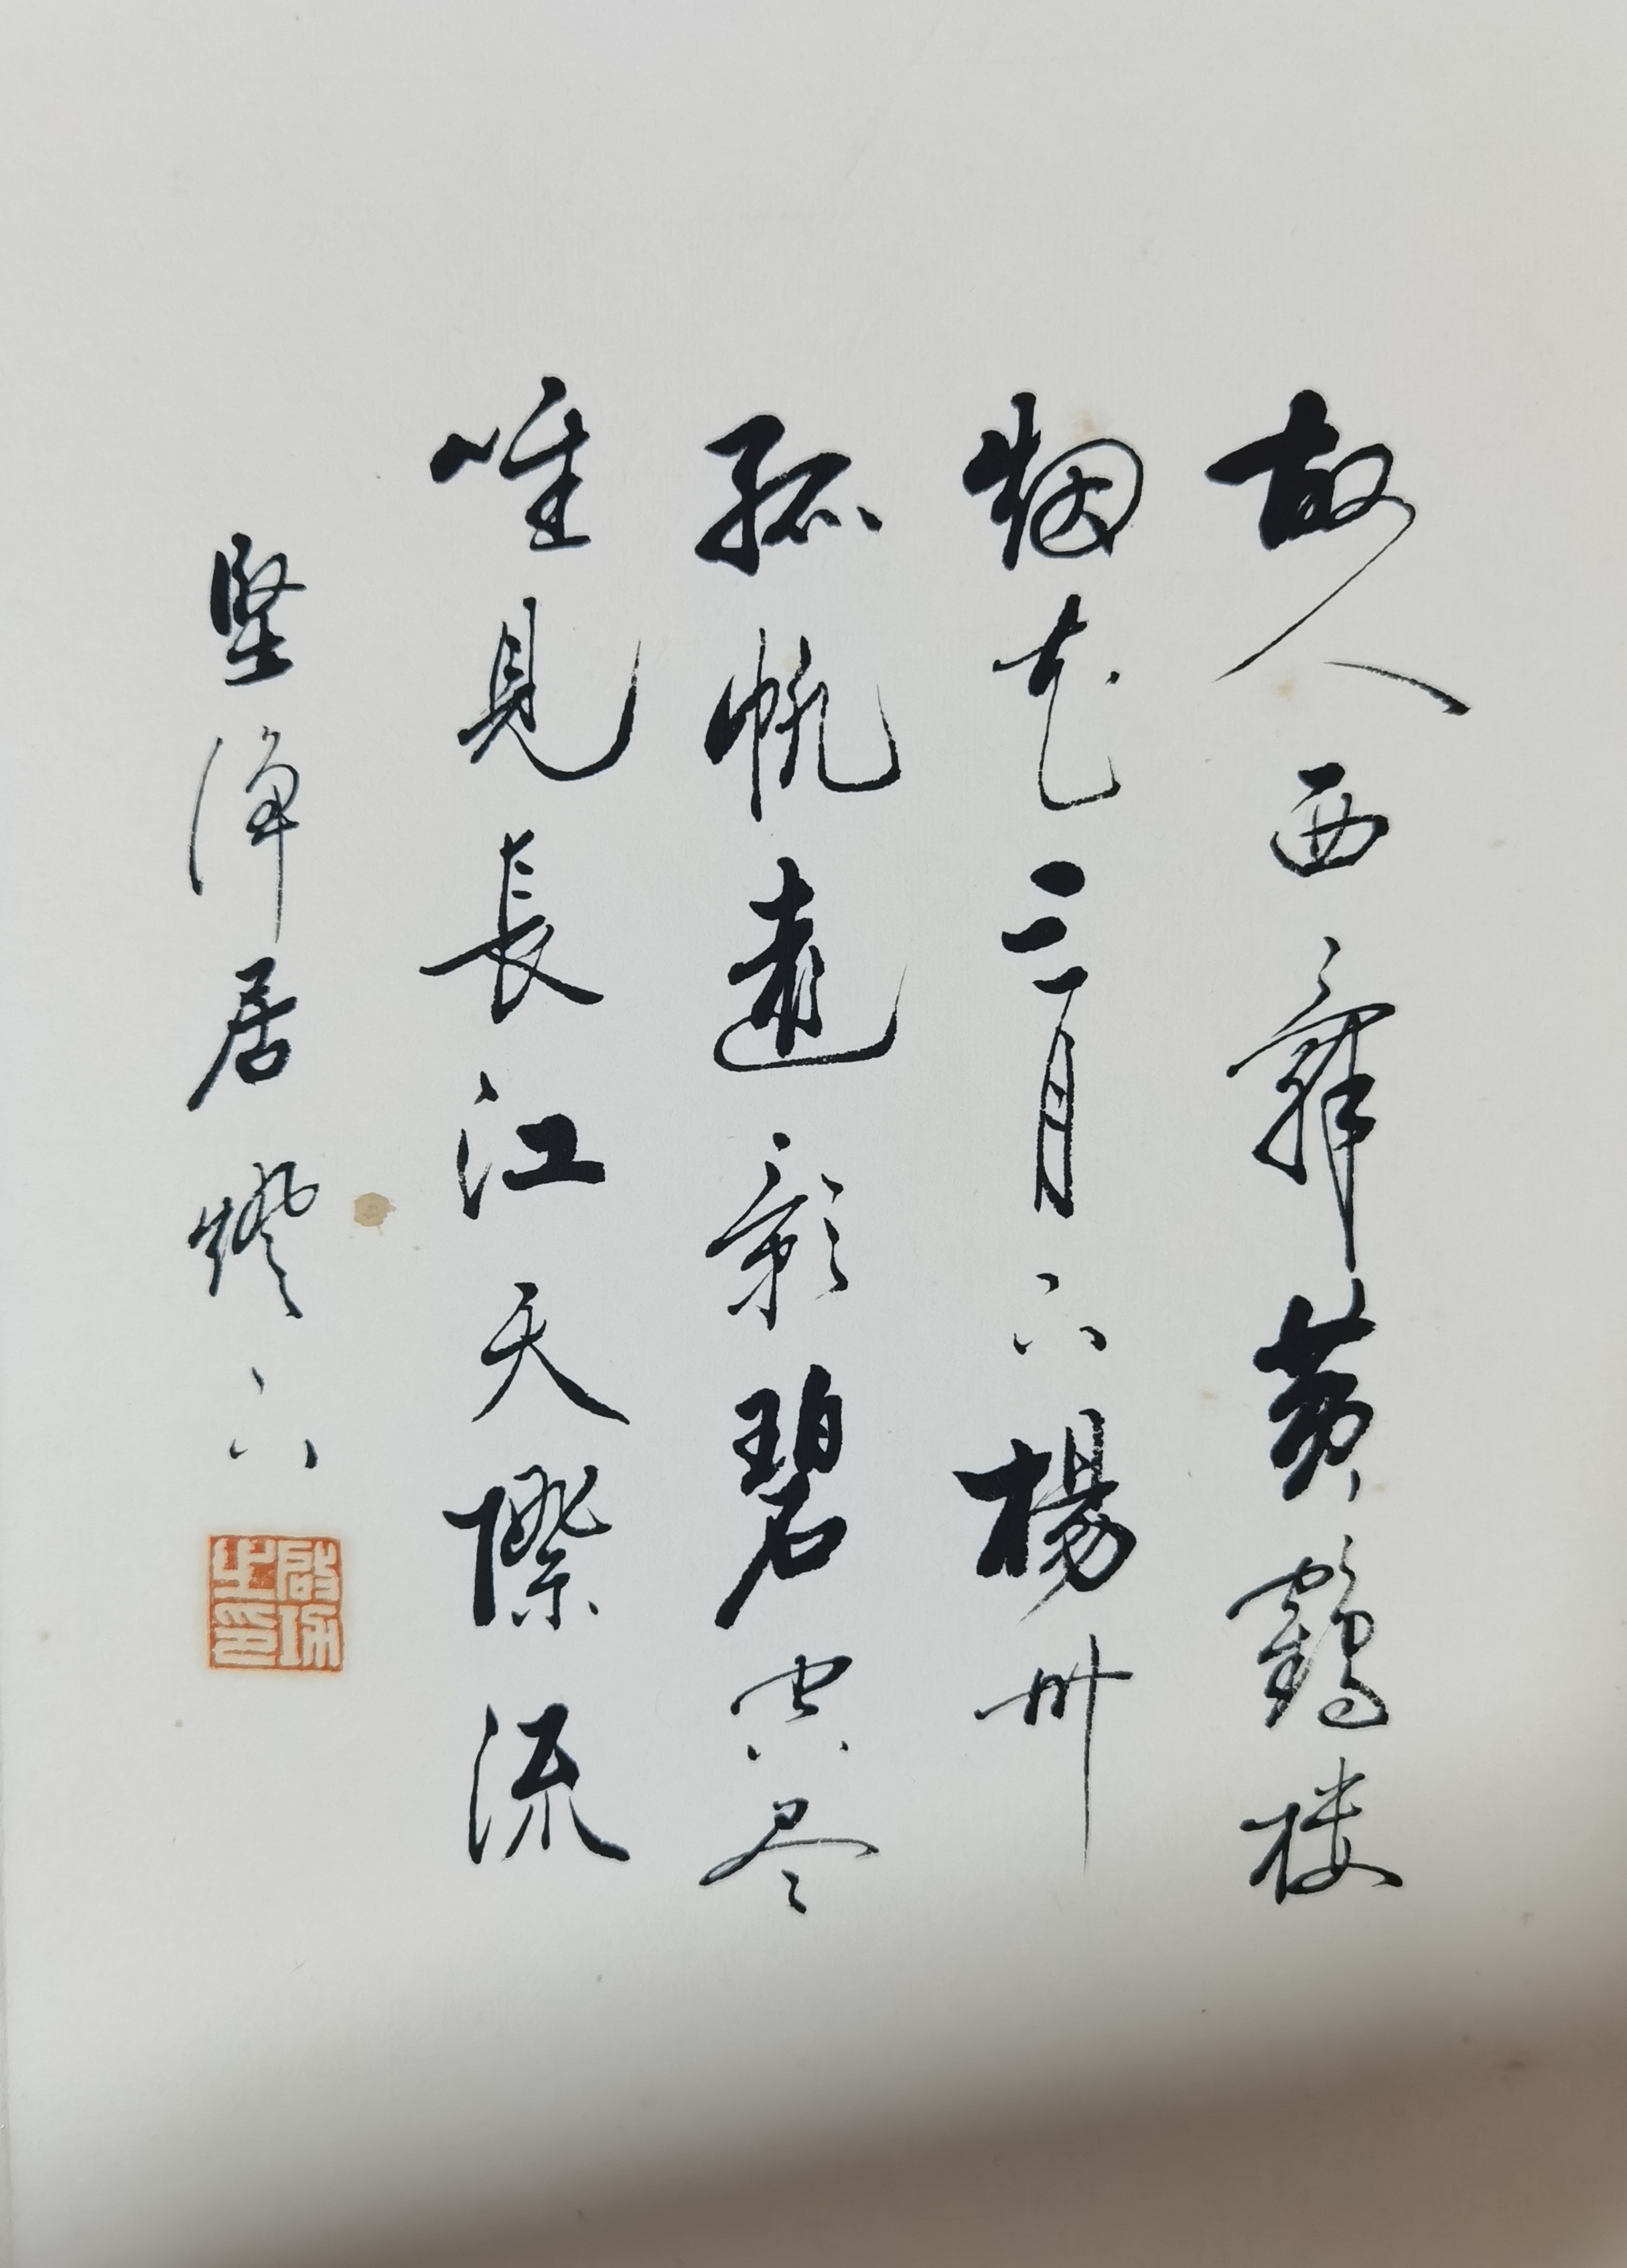 故人西辭黄鶴楼
烟花三月下楊州
孤帆遠影碧空尽
唯見長江天際流
堅淨居燈下
啟功之印